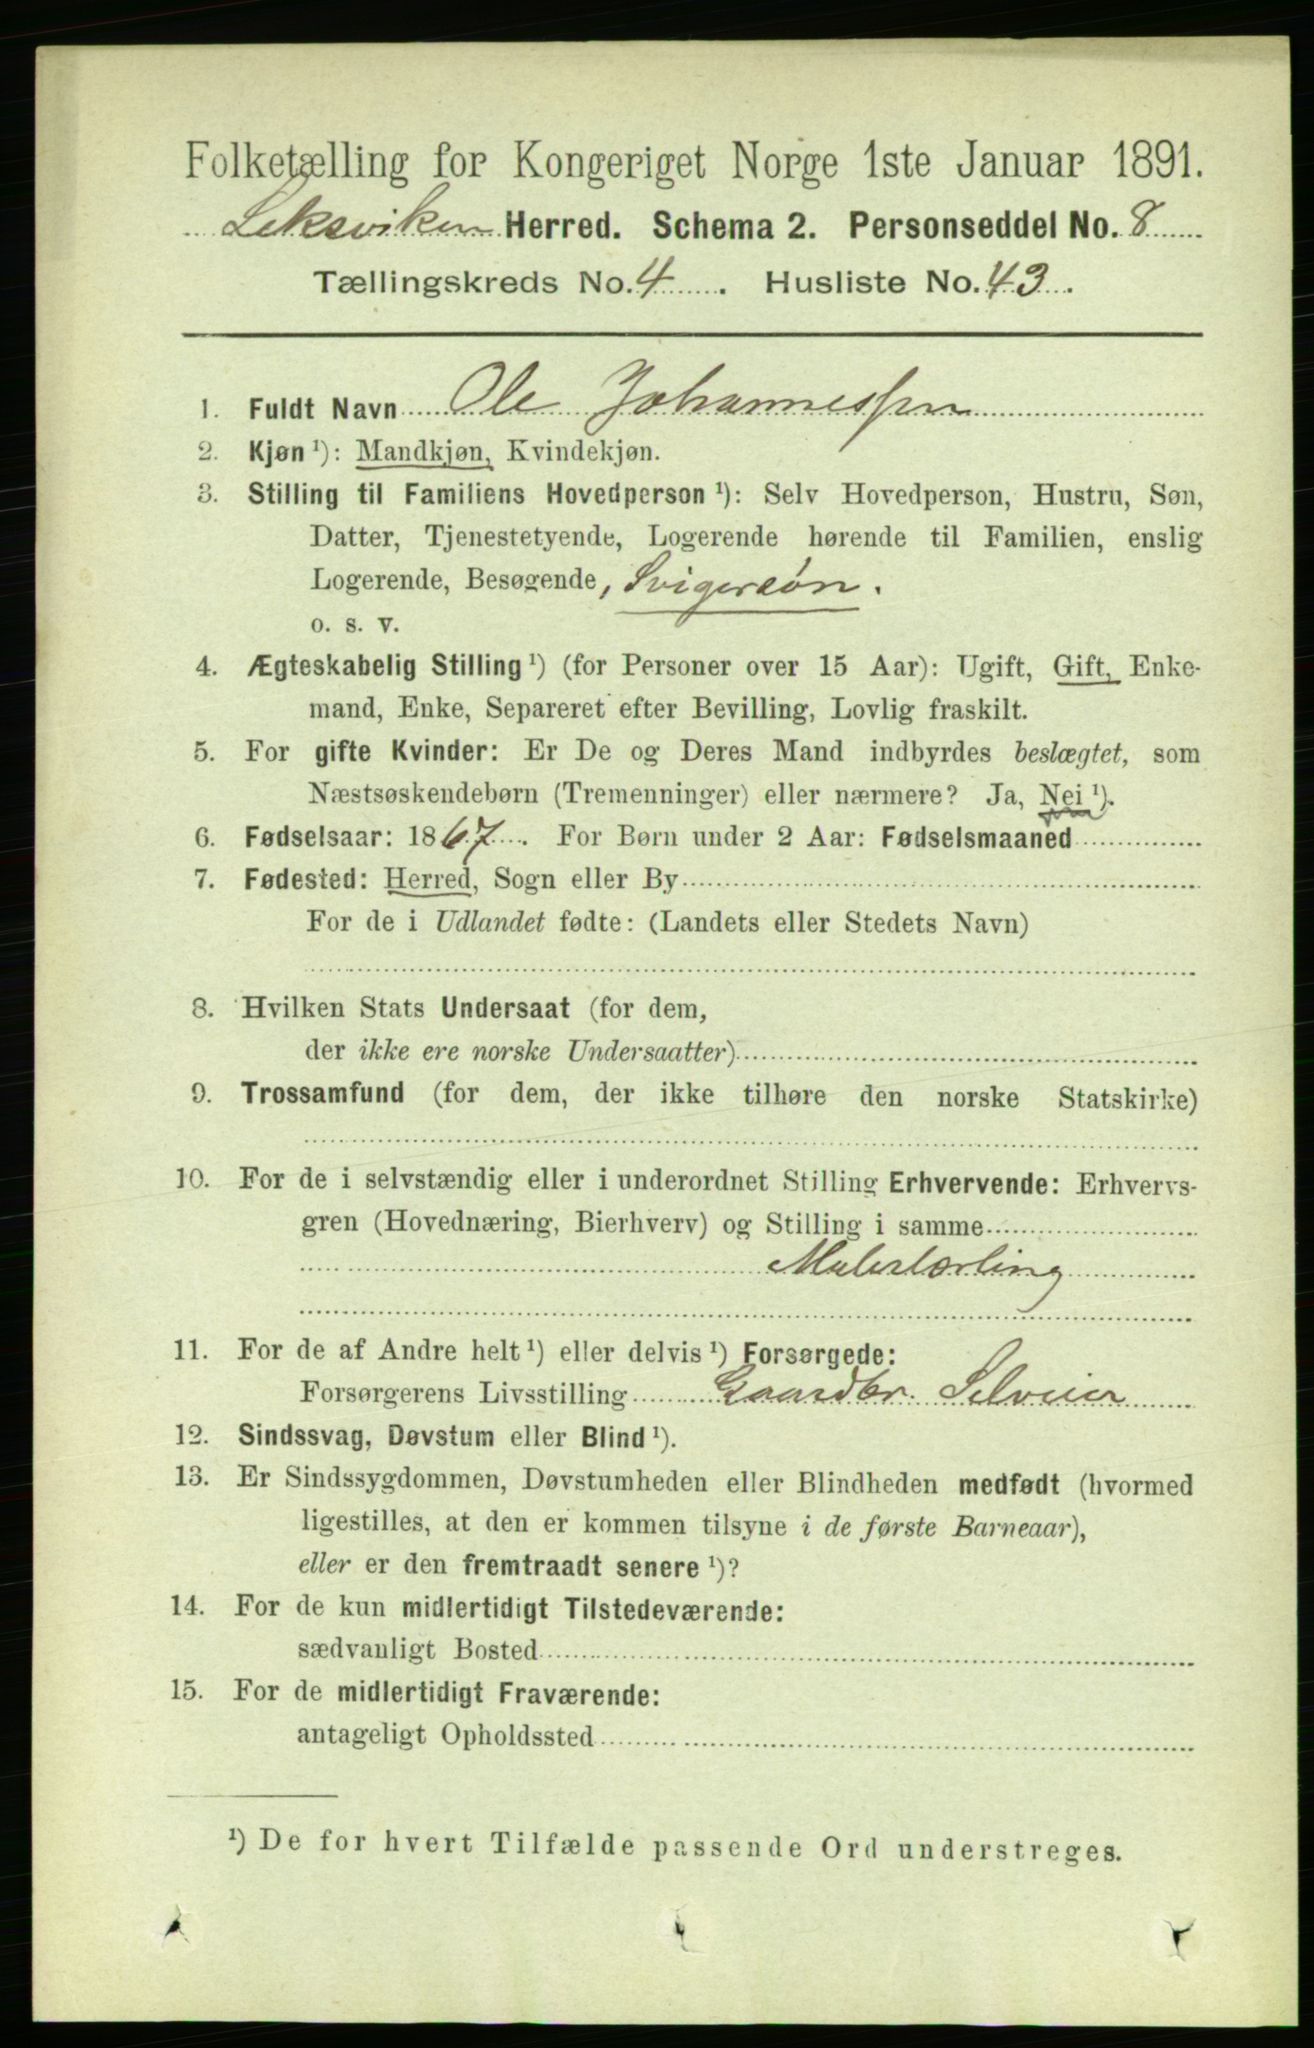 Folketælling for Kongeriget Norge 1ste Januar 1891.
Leksviken Herred. Schema 2. Personseddel No. 8
Tællingskreds No. 4. Husliste No. 43.
1. Fuldt Navn Ole Johannessen
2. Kjøn ¹): Mandkjøn, Kvindekjøn.
3. Stilling til Familiens Hovedperson ¹): Selv Hovedperson, Hustru, Søn,
Datter, Tjenestetyende, Logerende hørende til Familien, enslig
Logerende, Besøgende, Svigersøn.
o. s. v.
4. Ægteskabelig Stilling ¹) (for Personer over 15 Aar): Ugift, Gift, Enke-
mand, Enke, Separeret efter Bevilling, Lovlig fraskilt.
5. For gifte Kvinder: Er De og Deres Mand indbyrdes beslægtet, som
Næstsøskendebørn (Tremenninger) eller nærmere? Ja, Nei ¹).
6. Fødselsaar: 1867. For Børn under 2 Aar: Fødselsmaaned
7. Fødested: Herred, Sogn eller By
For de i Udlandet fødte: (Landets eller Stedets Navn)
8. Hvilken Stats Undersaat (for dem,
der ikke ere norske Undersaatter)
9. Trossamfund (for dem, der ikke tilhøre den norske Statskirke)
10. For de i selvstændig eller i underordnet Stilling Erhvervende: Erhvervs-
gren (Hovednæring, Bierhverv) og Stilling i samme
Malerlærling
11. For de af Andre helt ¹) eller delvis ¹) Forsørgede:
Forsørgerens Livsstilling Gaardbr. Selveier
12. Sindssvag, Døvstum eller Blind ¹).
13. Er Sindssygdommen, Døvstumheden eller Blindheden medfødt (hvormed
ligestilles, at den er kommen tilsyne i de første Barneaar),
eller er den fremtraadt senere ¹)?
14. For de kun midlertidigt Tilstedeværende:
sædvanligt Bosted
15. For de midlertidigt Fraværende:
antageligt Opholdssted
¹) De for hvert Tilfælde passende Ord understreges.